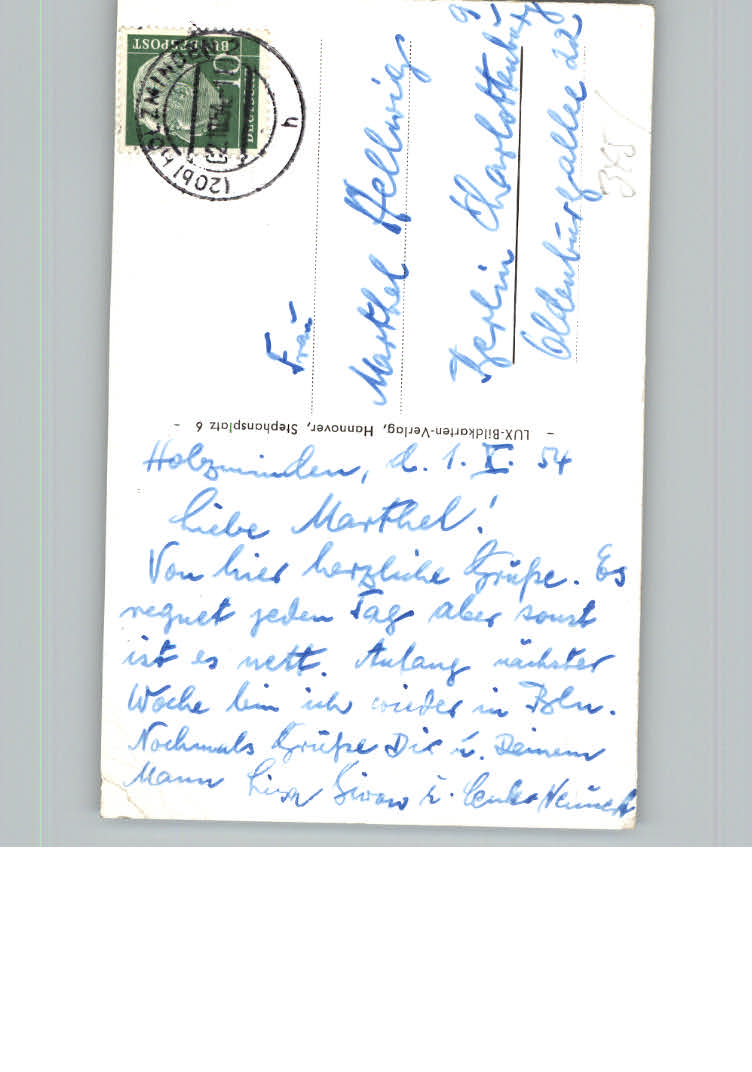 Holzminden, d. 1. X. 54
Liebe Marthel!
Von hier herzliche Grüße. Es
regnet jeden Tag aber sonst
ist es nett. Anfang nächster
Woche bin ich wieder in Bln.
Nochmals Grüße Dir u. Deinem
Mann u.
Frau
Marthel Hellwig
Berlin Charlottenburg 9
Oldenburgallee 22
345
LUX-Bildkarten-Verlag, Hannover, Stephansplatz 6
(20b) HOLZMINDEN
h
BUNDESPOST
10
DEUTSCHE